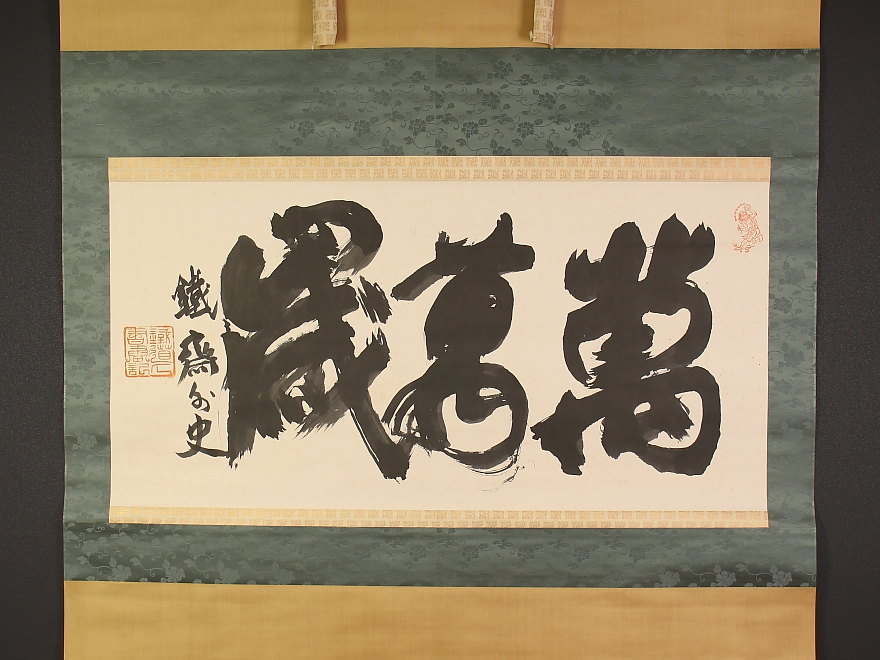 萬萬歳
鐵齋外史